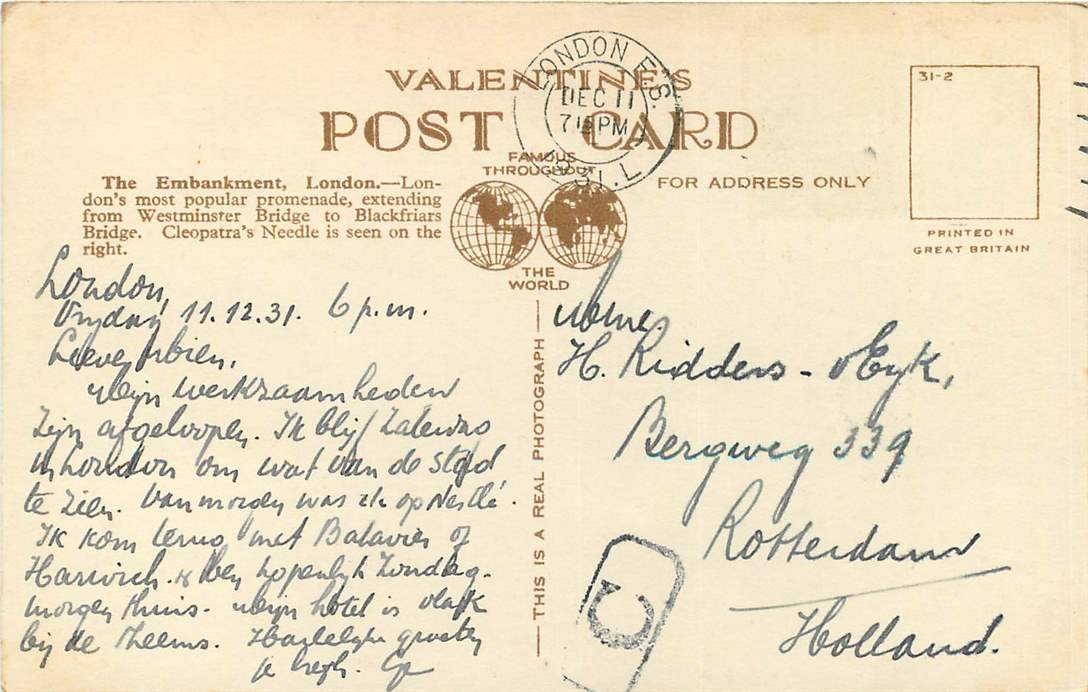 VALENTINE'S
POST CARD
FAMOUS
THROUGHOUT
THE
WORLD
FOR ADDRESS ONLY
LONDON E.S.
DEC 11
7 15 PM
31-2
PRINTED IN
GREAT BRITAIN
The Embankment, London.—Lon-
don's most popular promenade, extending
from Westminster Bridge to Blackfriars
Bridge. Cleopatra's Needle is seen on the
right.
London,
Vrydag 11.12.31. 6 p.m.
Lieve
Mijn werkzaamheden
zijn afgeloopen. Ik blijf Zaterdag
in London om wat van de stad
te zien. Van morgen was ik op Nestlé.
Ik kom terug met Batavier of
Harwich. & ben hopenlijk Zondag-
morgen thuis. Mijn hotel is vlak
bij de Theems. Hartelijke groeten
je
THIS IS A REAL PHOTOGRAPH
Mme.
H. Ridders - v Eyk,
Bergweg 339
Rotterdam
Holland.
C